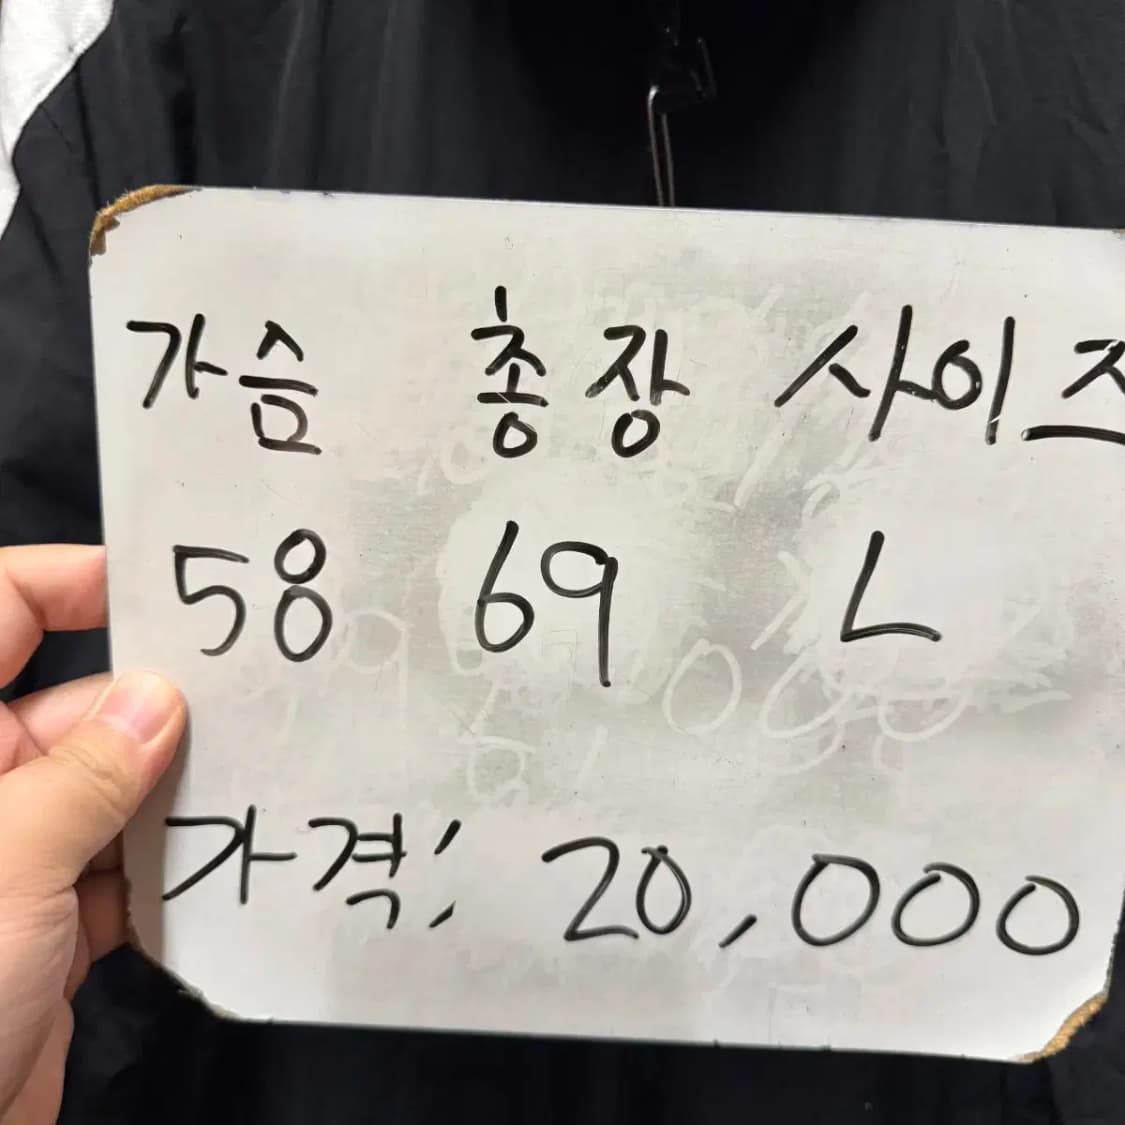 가슴 총장 사이즈
58 69 L
가격: 20,000